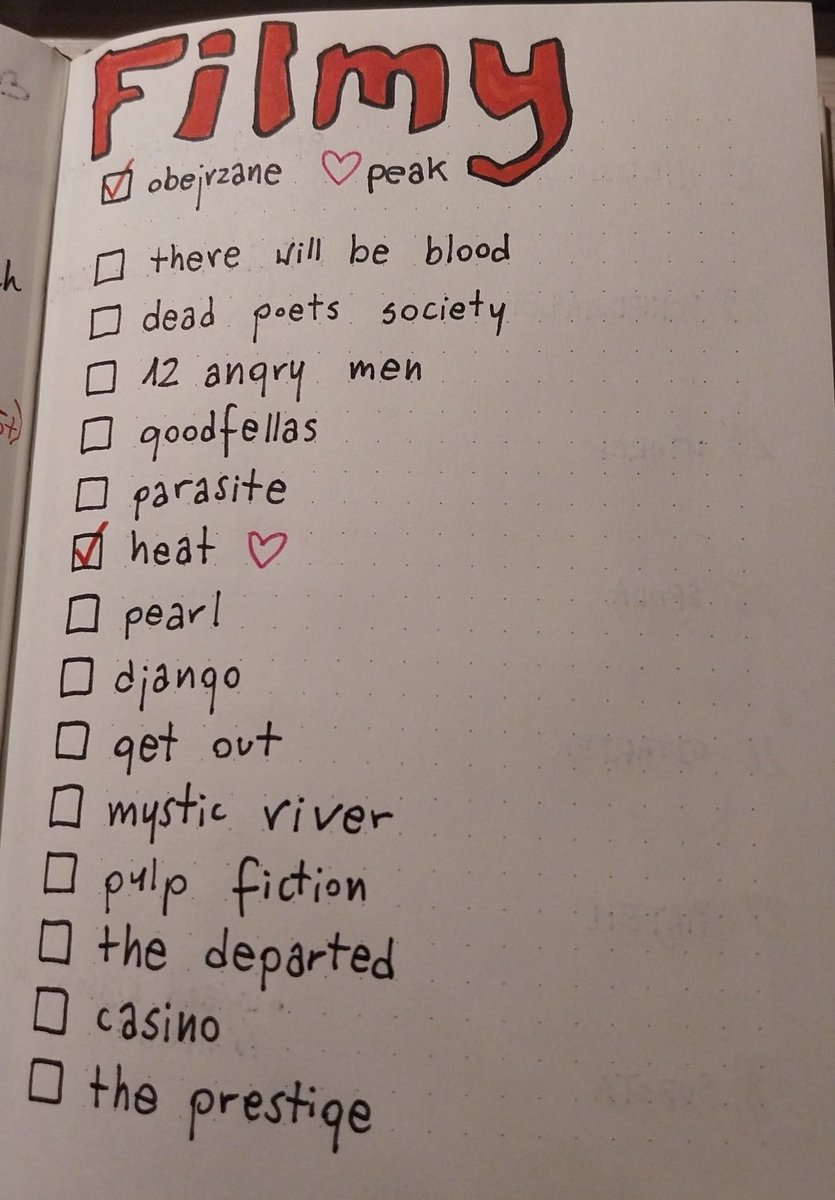 Filmy
obejrzane peak
there will be blood
dead poets society
12 angry men
goodfellas
parasite
heat
pearl
django
get out
mystic river
pulp fiction
the departed
casino
the prestige